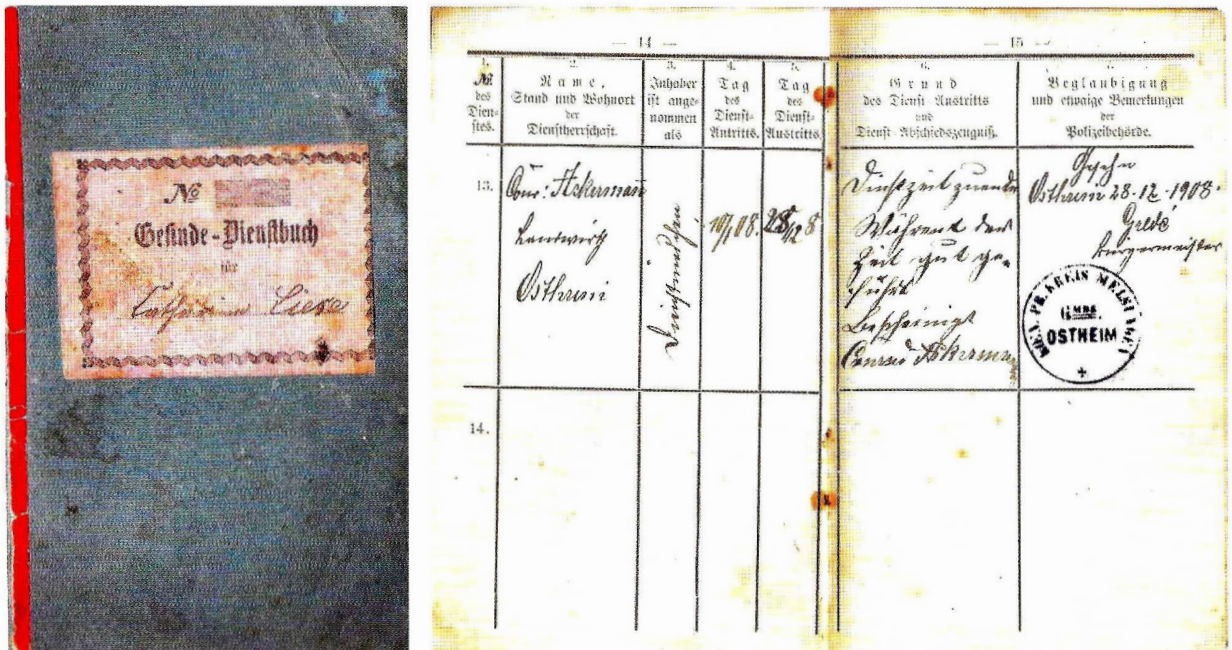 №
Gesinde-Dienstbuch
für
Catharina
— 14 —
1.
№
des
Dien-
stes.
2.
Name,
Stand und Wohnort
der
Dienstherrschaft.
3.
Inhaber
ist ange-
nommen
als
4.
Tag
des
Dienst-
Antritts.
5.
Tag
des
Dienst-
Austritts.
— 15 —
6.
Grund
des Dienst-Austritts
und
Dienst-Abschiedszeugniß.
7.
Beglaubigung
und etwaige Bemerkungen
der
Polizeibehörde.
13.
Conr: Ackermann
Landwirth
Ostheim
Dienstmädchen
10/1 08.
28/12 8
Dienstzeit zuende
Während der
Zeit gut ge-
führt
Bescheinigt
Conrad Ackermann
Gesehn
Ostheim 28.12.1908
Bürgermeister
KÖN. PR. KREIS MELSUNGEN
GMDE.
OSTHEIM
14.